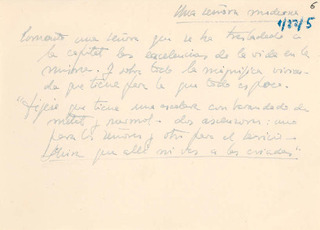 6
Una señora moderna
1/22/5
Comenta una señora que se ha trasladado a
la capital las excelencias de la vida en la
misma. Y sobre todo la magnífica vivien-
da que tiene por la que todo es poco.
"Fíjese que tiene una escalera con barandado de
metal y marmol - dos ascensores: uno
para los señores y otro para el servicio -
que allí ni ves a las criadas"